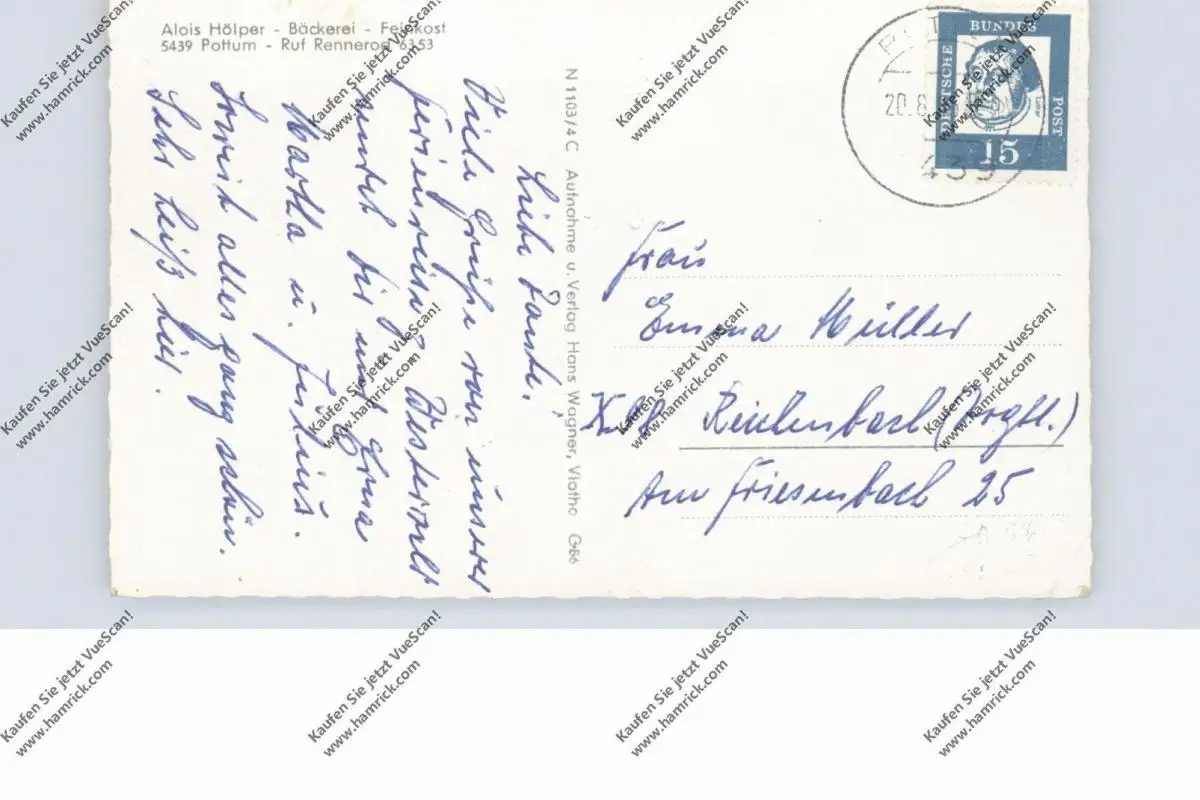 Alois Hölper - Bäckerei - Feinkost
5439 Pottum - Ruf Rennerod 6353
Liebe Tante!
Viele Grüße von unserer
Ferienreise. Westerwald
sendet Dir und Erna
Martha u. Julius.
Soweit alles ganz schön.
Sehr heiß hier.
N 1103/4 C Aufnahme u. Verlag Hans Wagner, Vlotho G-86
20.8
439
DEUTSCHE
BUNDES
POST
15
Frau
Emma Müller
Reichenbach (Vogtl.)
Am Friesenbach 25
Kaufen Sie jetzt VueScan!
www.hamrick.com
Kaufen Sie jetzt VueScan!
www.hamrick.com
Kaufen Sie jetzt VueScan!
www.hamrick.com
Kaufen Sie jetzt VueScan!
www.hamrick.com
Kaufen Sie jetzt VueScan!
www.hamrick.com
Kaufen Sie jetzt VueScan!
www.hamrick.com
Kaufen Sie jetzt VueScan!
www.hamrick.com
Kaufen Sie jetzt VueScan!
www.hamrick.com
Kaufen Sie jetzt VueScan!
www.hamrick.com
Kaufen Sie jetzt VueScan!
www.hamrick.com
Kaufen Sie jetzt VueScan!
www.hamrick.com
Kaufen Sie jetzt VueScan!
www.hamrick.com